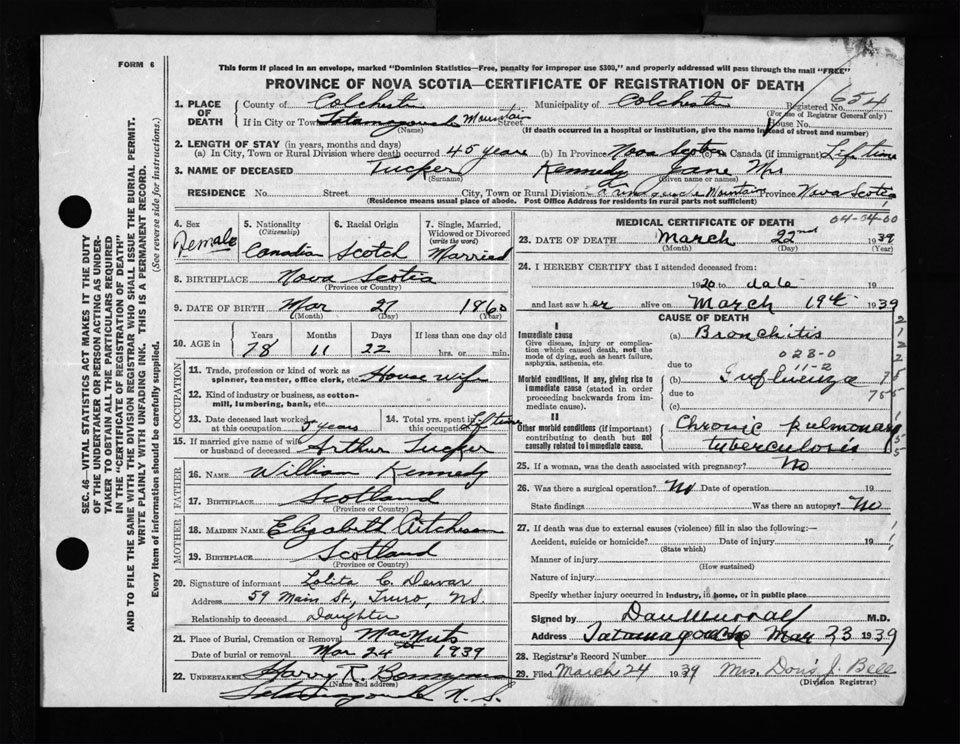 FORM 6
This form if placed in an envelope, marked "Dominion Statistics—Free, penalty for improper use $300," and properly addressed will pass through the mail "FREE"
PROVINCE OF NOVA SCOTIA—CERTIFICATE OF REGISTRATION OF DEATH
654
1. PLACE OF DEATH
County of Colchester Municipality of Colchester Registered No.
(For use of Registrar General only)
If in City or Town Tatamagouche Mountain Street House No.
(Name) (If death occurred in a hospital or institution, give the name instead of street and number)
2. LENGTH OF STAY (in years, months and days)
(a) In City, Town or Rural Division where death occurred 45 years (b) In Province Nova Scotia (c) Canada (if immigrant) Life time
3. NAME OF DECEASED Tucker Kennedy Jane Mrs
(Surname) (Given name or names)
RESIDENCE No. Street. City, Town or Rural Division Mountain Province Nova Scotia
(Residence means usual place of abode. Post Office Address for residents in rural parts not sufficient)
4. Sex Female
5. Nationality (Citizenship) Canadian
6. Racial Origin Scotch
7. Single, Married, Widowed or Divorced (write the word) Married
8. BIRTHPLACE Nova Scotia
(Province or Country)
9. DATE OF BIRTH Mar 27 1860
(Month) (Day) (Year)
10. AGE in Years Months Days If less than one day old
78 11 22 hrs. or min.
OCCUPATION
11. Trade, profession or kind of work as spinner, teamster, office clerk, etc. House Wife
12. Kind of industry or business, as cotton-mill, lumbering, bank, etc.
13. Date deceased last worked at this occupation years
14. Total yrs. spent in this occupation Life time
15. If married give name of wife or husband of deceased Arthur Tucker
FATHER
16. NAME William Kennedy
17. BIRTHPLACE Scotland
(Province or Country)
MOTHER
18. MAIDEN NAME Elizabeth Aitchison
19. BIRTHPLACE Scotland
(Province or Country)
20. Signature of informant Lolita C. Dewar
Address 59 Main St, Truro, N.S.
Relationship to deceased Daughter
21. Place of Burial, Cremation or Removal MacNuts
Date of burial or removal Mar 24th 1939
22. UNDERTAKER Harry R.
(Name and address)
Tatamagouche N.S.
MEDICAL CERTIFICATE OF DEATH
04-04-00
23. DATE OF DEATH March 22nd 1939
(Month) (Day) (Year)
24. I HEREBY CERTIFY that I attended deceased from:
1920 to date 19
and last saw her alive on March 19th 1939
CAUSE OF DEATH
I
Immediate cause
Give disease, injury or complication which caused death, not the mode of dying, such as heart failure, asphyxia, asthenia, etc.
(a) Bronchitis
due to
023-0
11-2
Morbid conditions, if any, giving rise to immediate cause (stated in order proceeding backwards from immediate cause).
(b) Influenza
due to
(c)
II
Other morbid conditions (if important) contributing to death but not causally related to immediate cause.
Chronic pulmonary
tuberculosis
25. If a woman, was the death associated with pregnancy? No
26. Was there a surgical operation? No Date of operation 19
State findings Was there an autopsy? No
27. If death was due to external causes (violence) fill in also the following:—
Accident, suicide or homicide? Date of injury 19
(State which)
Manner of injury
(How sustained)
Nature of injury
Specify whether injury occurred in industry, in home, or in public place
Signed by Dan Murray M.D.
Address Tatamagouche Mar 23 1939
28. Registrar's Record Number
29. Filed March 24 1939 Mrs. Doris J. Bell
(Division Registrar)
SEC. 46—VITAL STATISTICS ACT MAKES IT THE DUTY
OF THE UNDERTAKER OR PERSON ACTING AS UNDER-
TAKER TO OBTAIN ALL THE PARTICULARS REQUIRED
IN THE "CERTIFICATE OF REGISTRATION OF DEATH"
AND TO FILE THE SAME WITH THE DIVISION REGISTRAR WHO SHALL ISSUE THE BURIAL PERMIT.
WRITE PLAINLY WITH UNFADING INK. THIS IS A PERMANENT RECORD.
Every item of information should be carefully supplied. (See reverse side for instructions.)